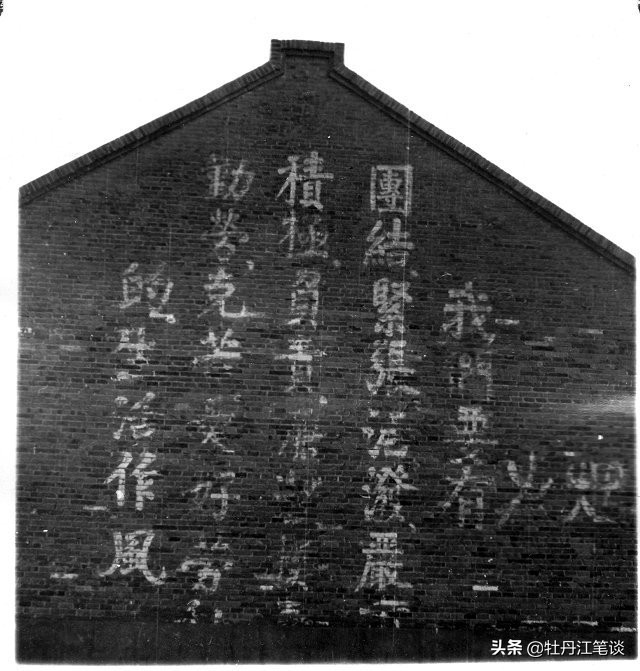 我們要有
團結、緊張、活潑、嚴
積極、負責、
勤勞、克苦、愛好勞
的生活作風
头条 @牡丹江笔谈